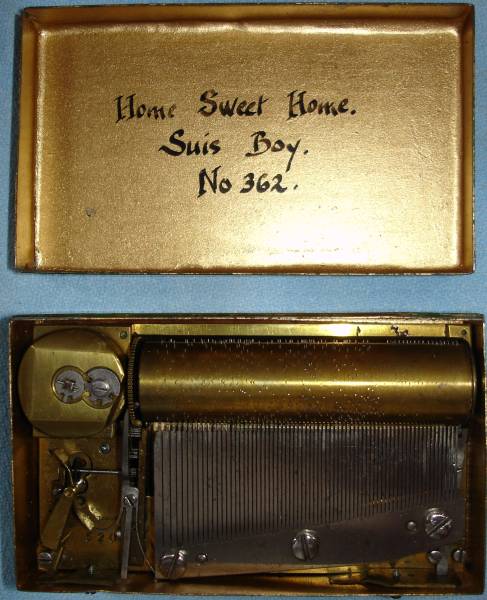 Home Sweet Home.
Suis Boy.
No 362.